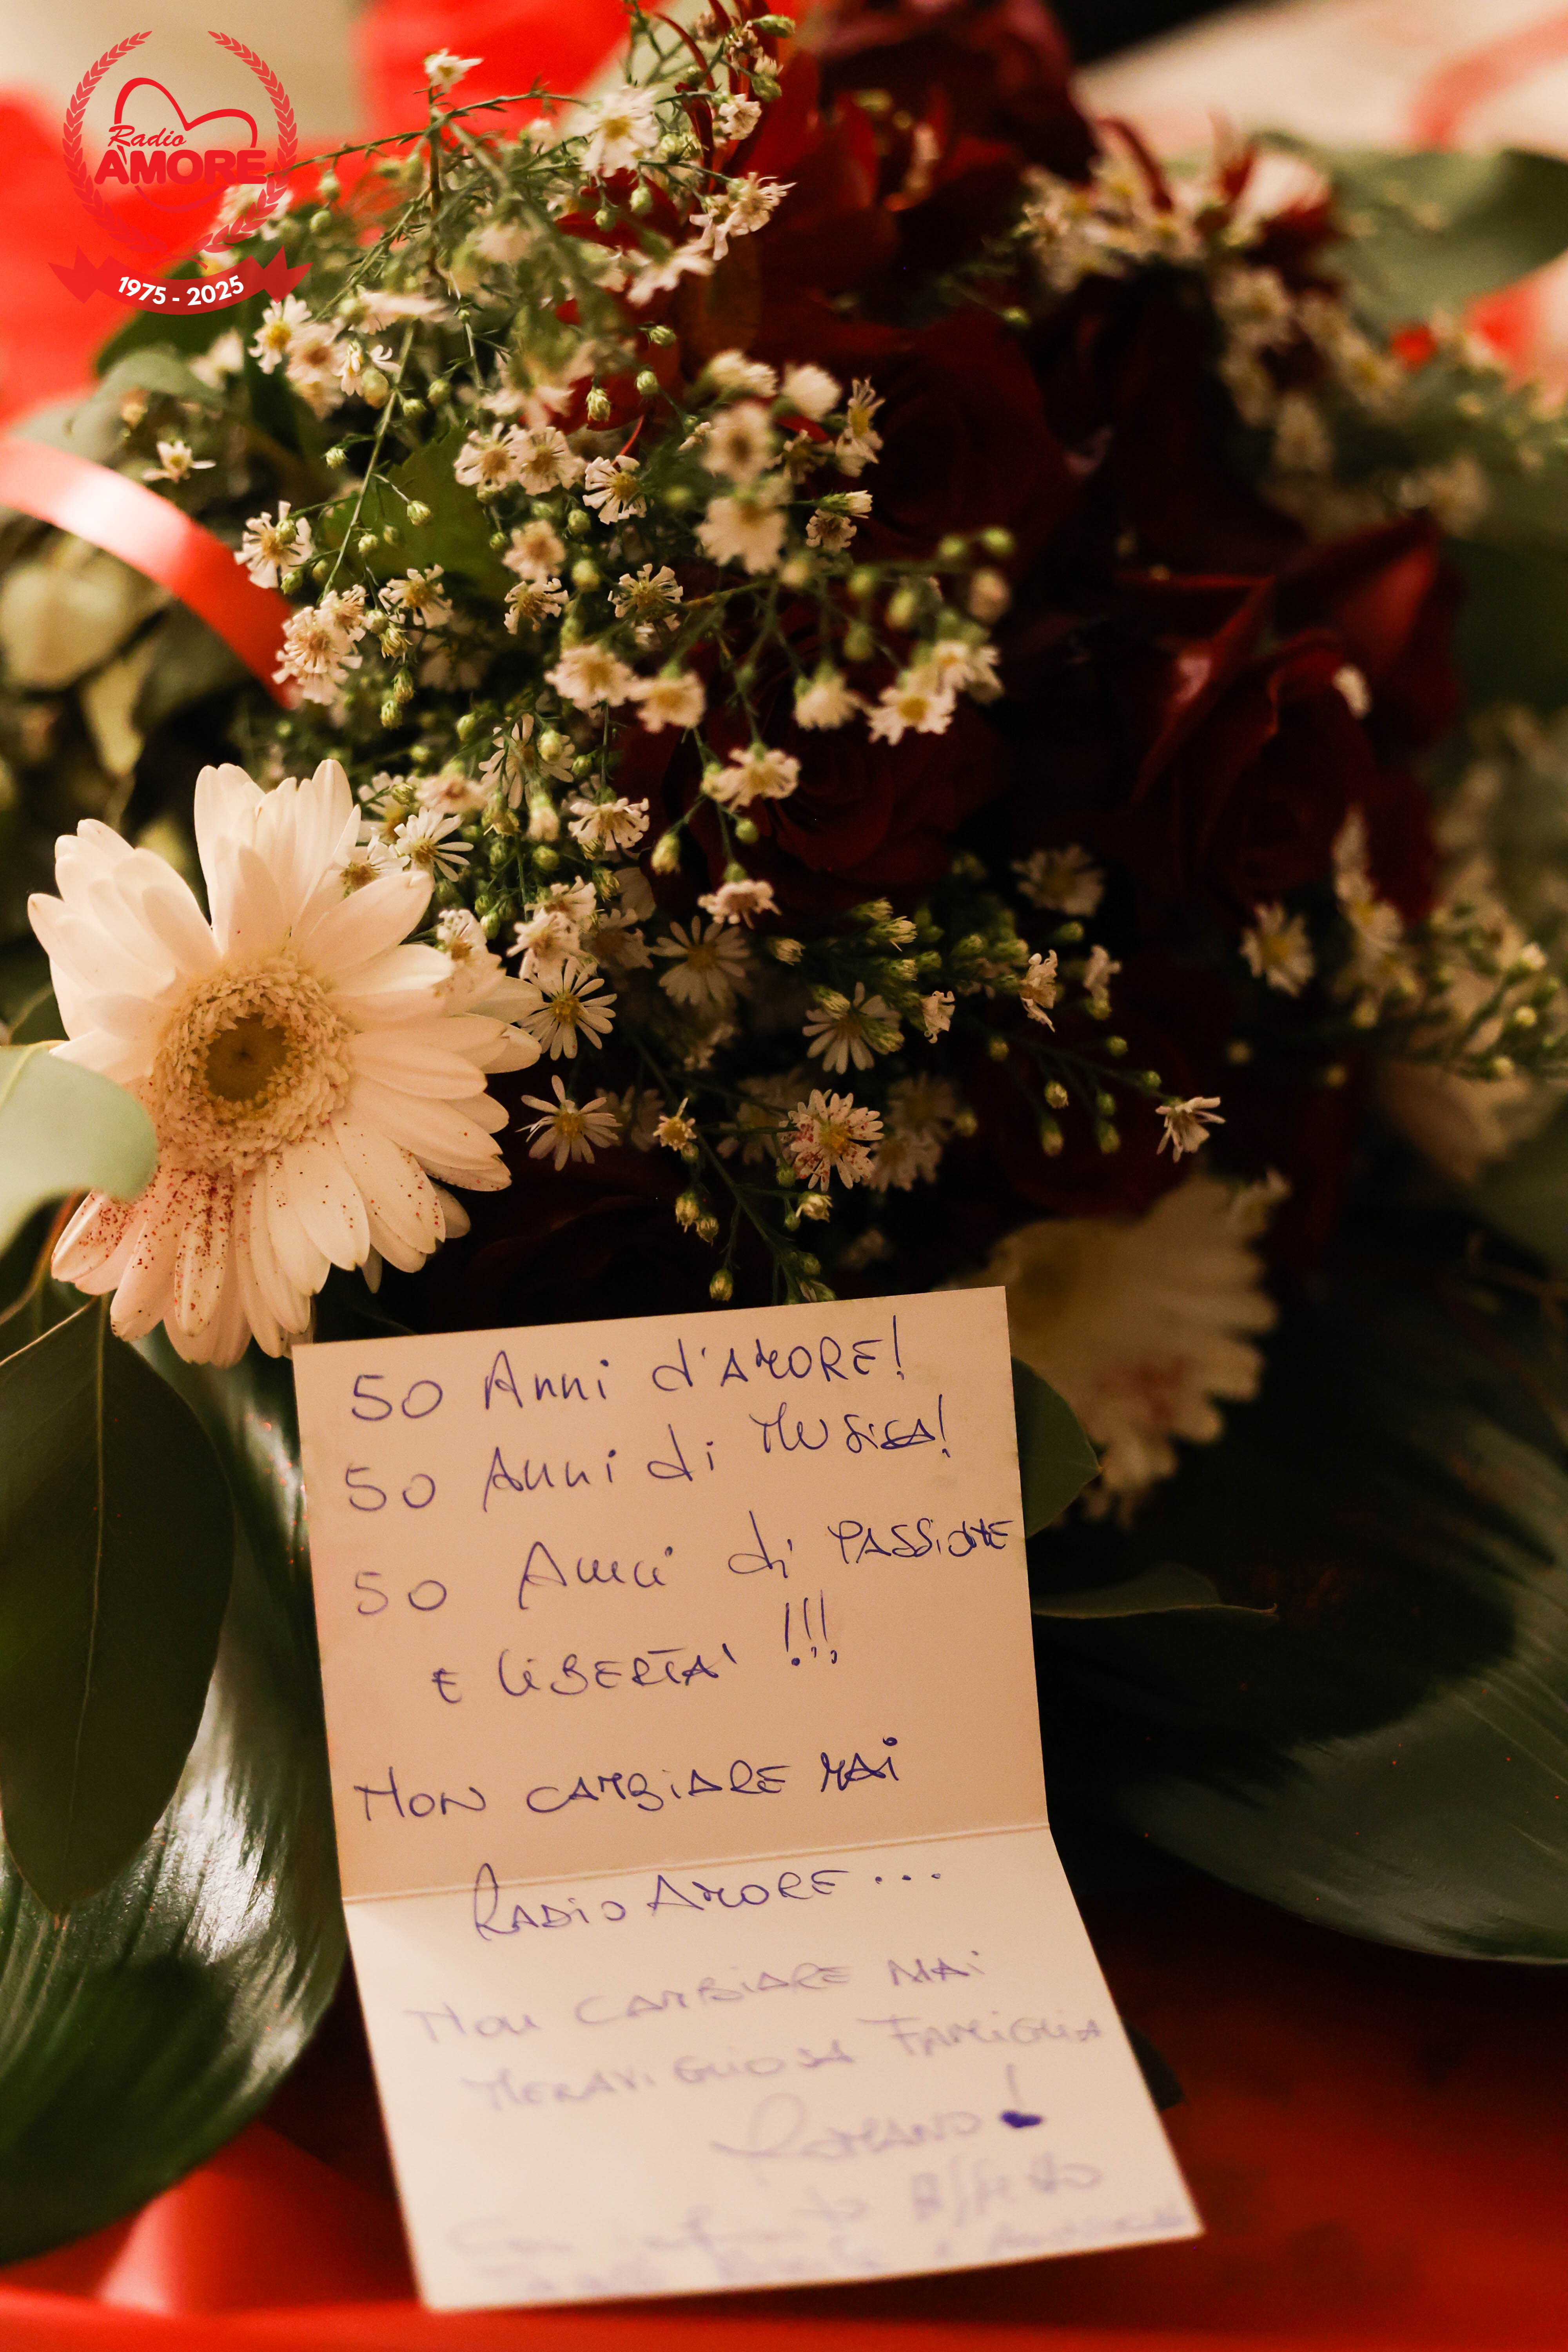 Radio
AMORE
1975 - 2025
50 Anni d'AMORE!
50 Anni di MUSICA!
50 Anni di PASSIONE
E LIBERTA' !!!
NON CAMBIARE MAI
RADIO AMORE...
NON CAMBIARE MAI
MERAVIGLIOSA FAMIGLIA
ROMANO!
Affetto